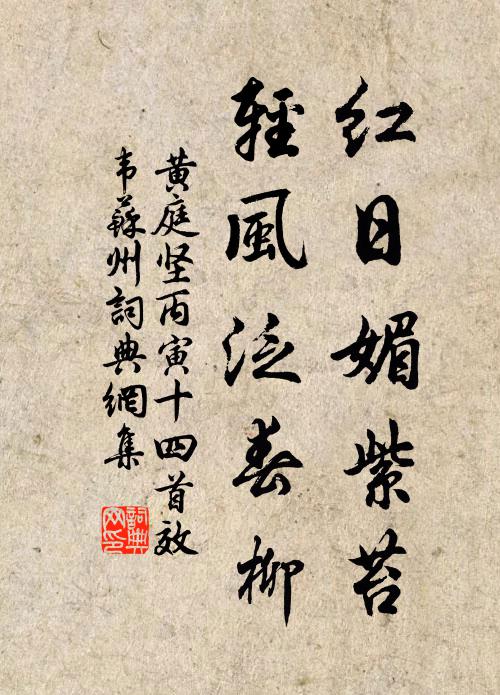 红日媚紫苔
輕風泛春柳
黄庭坚丙寅十四首效
韦蘇州詞典網集
詞典网印